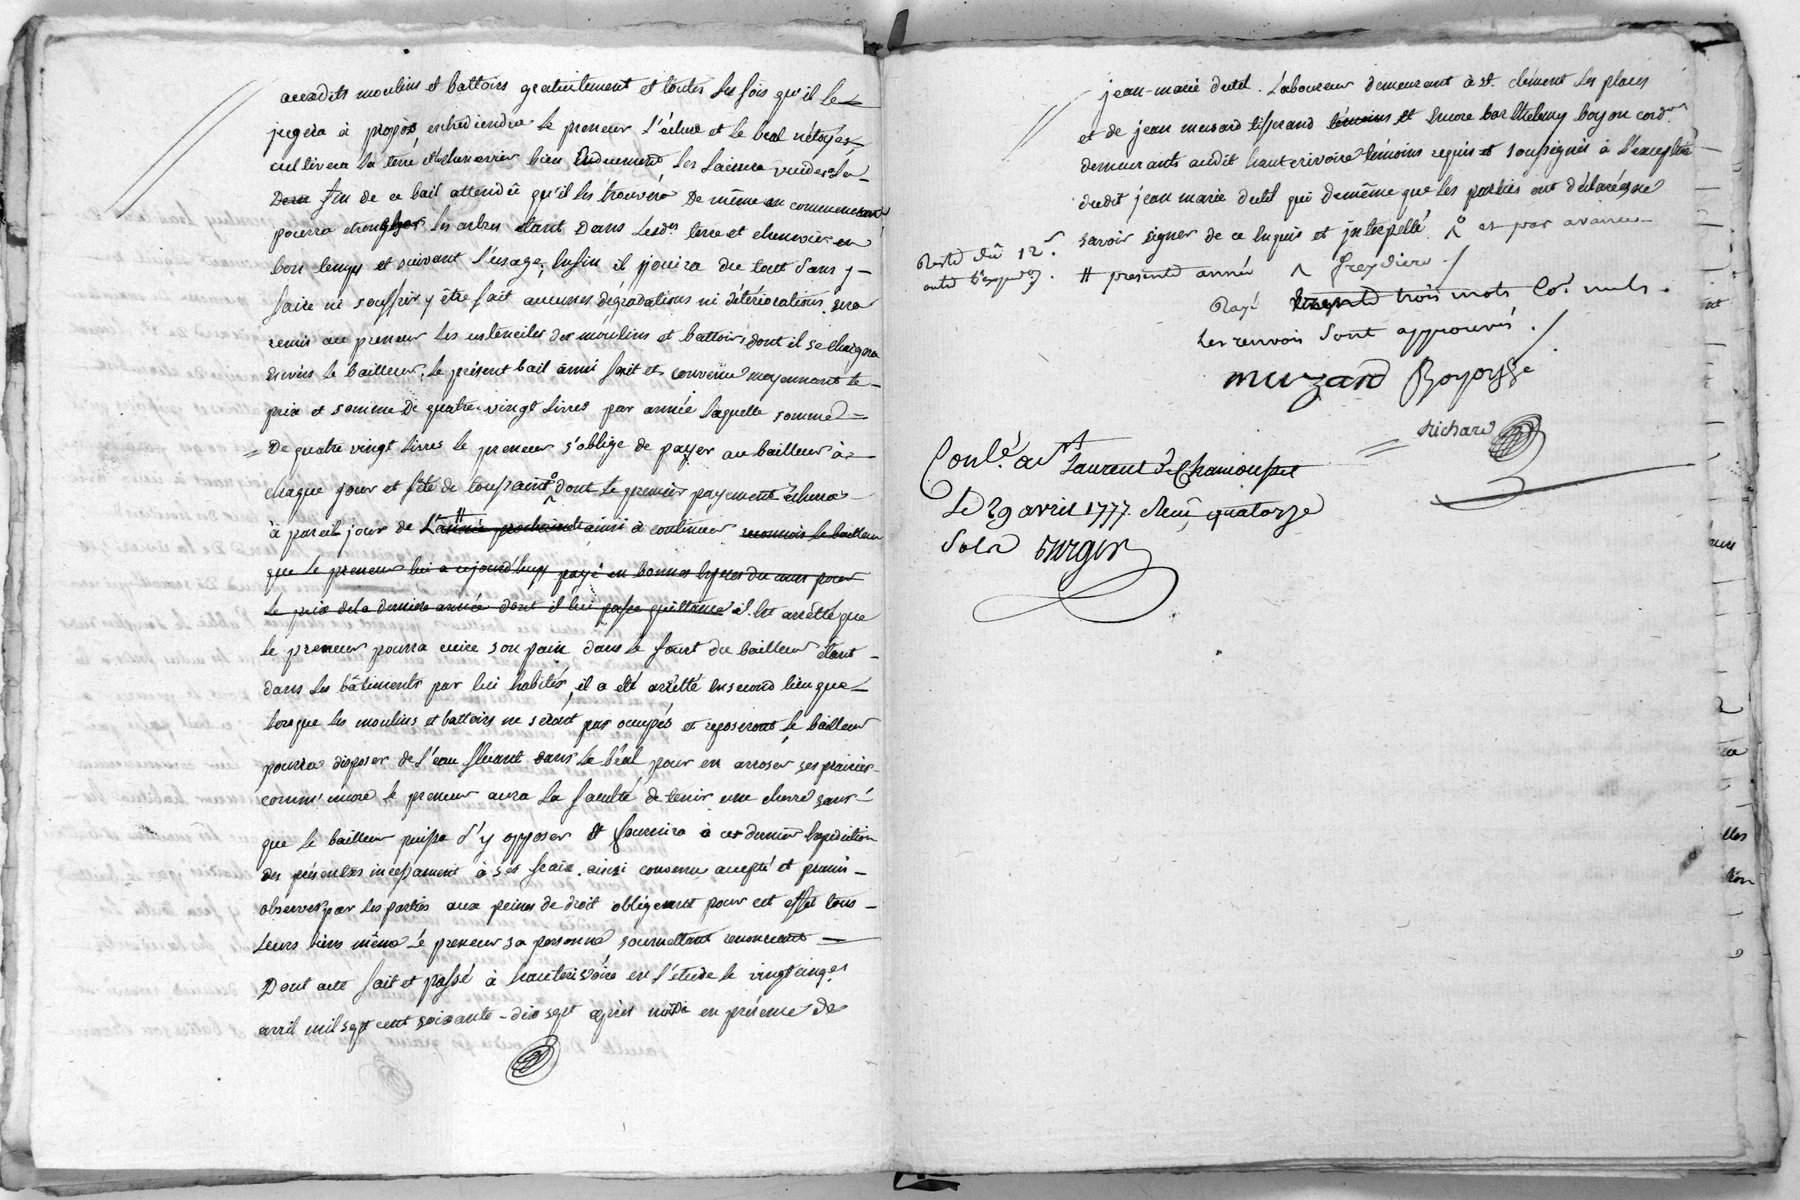 auxdits moulins et battoirs gratuitement et toutes les fois qu'il le
jugera à propos entretiendra le preneur l'écluse et le béal nétoyés
cultivera la terre et chenevier bien duement les laissera vuides à la
fin de ce bail attendû qu'il les trouvera de même en commencant
pourra les arbres étant dans lesd.es terre et chenevier en
bon temps et suivant l'usage, enfin il jouira du tout sans y
faire ni souffrir y être fait aucunes dégradations ni détériorations. sera
remis au preneur les ustenciles des moulins et battoirs dont il se chargera
envers le bailleur, le présent bail ainsi fait et convenu moyennant le
prix et somme de quatre vingt livres par année laquelle somme
de quatre vingt livres le preneur s'oblige de payer au bailleur à
chaque jour et fête de toussaint dont le premier payement échera
à pareil jour de l'année prochaine ainsi à continuer reconnois le bailleur
que le preneur lui a cejourd'huy payé en bonnes espèces du cours pour
le prix de la derniere année dont il lui passe quittance il est arrêtté que
le preneur pourra cuire son pain dans le fourt du bailleur étant
dans les bâtiments par lui habités, il a été arrêtté en second lieu que
lorsque les moulins et battoirs ne seront pas occupés et reposeront le bailleur
pourra disposer de l'eau fluant dans le béal pour en arroser ses prairies
comm'encore le preneur aura la faculté de tenir une chevre sans
que le bailleur puisse s'y opposer et fournira à ce dernier expédition
des présentes incessament à ses frais. ainsi convenu accepté et promis
observer par les parties aux peines de droit obligeant pour cet effet tous
leurs biens même le preneur sa personne soumettant renonceant
Dont acte fait et passé à hauterivoire en l'étude le vingt
avril mil sept cent soixante-dix sept après midi en présence de
jean-marie dutel. Laboureur demeurant à st. clément les places
et de jean musard tisserand témoins et encore barthelemy boyon cord.
demeurants audit hauterivoire témoins requis et soussignés à l'exception
dudit jean marie dutel qui de même que les parties ont déclaré ne
savoir signer de ce enquis et interpellé et par avance
Resté dû 12.s
# presente année
Rayé trente trois mots nuls.
les renvois sont approuvés ./
muzard Boyon
Richard
Conlé. à st Laurent de Chamousset
Le 29 avril 1777. Reçu quatorze
sols